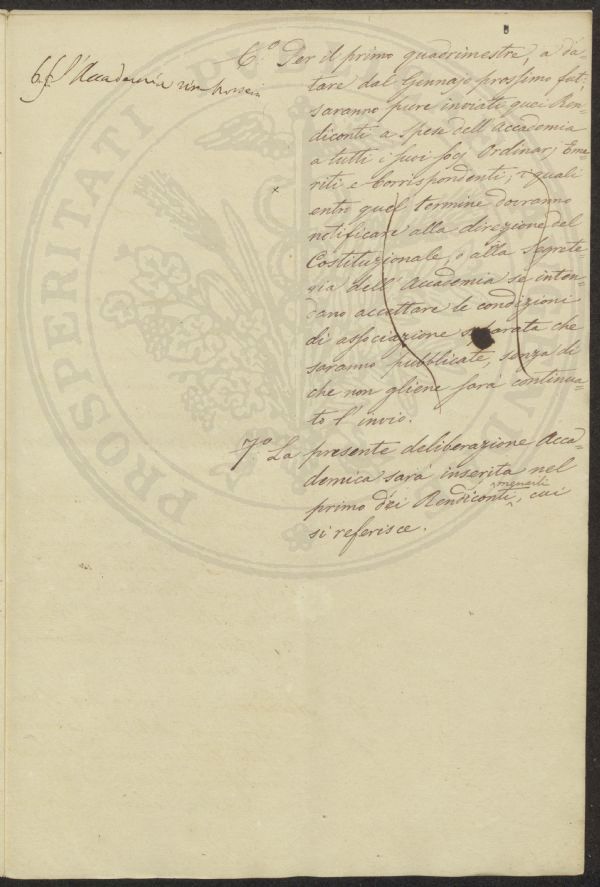 6.º Per il primo quadrimestre, a da-
tare dal Gennajo prossimo fut.
saranno pure inviati quei Ren-
diconti a spese dell'Accademia
a tutti i suoi socj Ordinarj, Eme-
riti e Corrispondenti, i quali
entro quel termine dovranno
notificare alla direzione del
Costituzionale, o alla Segrete-
ria dell'Accademia se inten-
dano accettare le condizioni
di associazione separata che
saranno pubblicate, senza di
che non gliene sarà continua-
to l'invio.
7.º La presente deliberazione Acca-
demica sarà inserita nel
primo dei Rendiconti, cui
si referisce.
l'Accademia
PROSPERITATI